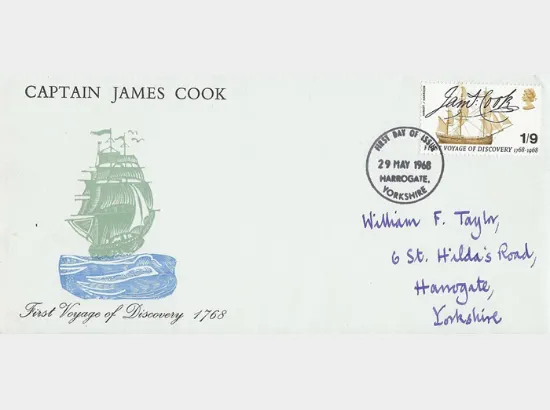 CAPTAIN JAMES COOK
Jams Cook
1/9
FIRST VOYAGE OF DISCOVERY 1768-1968
FIRST DAY OF ISSUE
29 MAY 1968
HARROGATE,
YORKSHIRE
William F. Taylor,
6 St. Hilda's Road,
Harrogate,
Yorkshire
First Voyage of Discovery 1768